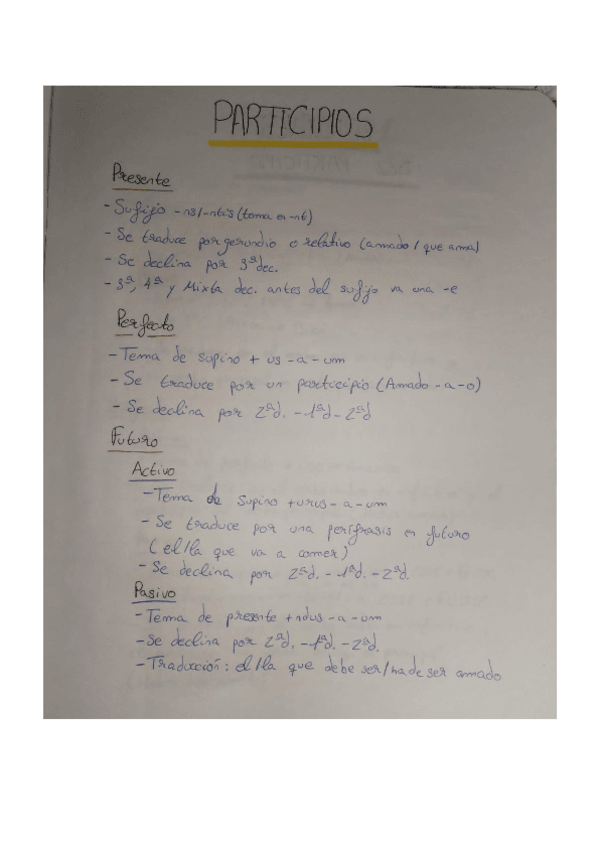 PARTICIPIOS
Presente
- Sufijo -ns/-ntis (tema en -nt)
- Se traduce por gerundio o relativo (amado / que ama)
- Se declina por 3ª dec.
- 3ª, 4ª y Mixta dec. antes del sufijo va una -e
Perfecto
- Tema de supino + us - a - um
- Se traduce por un participio (Amado - a - o)
- Se declina por 2ªd. - 1ªd - 2ªd
Futuro
Activo
- Tema de supino + urus - a - um
- Se traduce por una perífrasis en futuro
(el/la que va a comer)
- Se declina por 2ªd. - 1ªd. - 2ªd.
Pasivo
- Tema de presente + ndus - a - um
- Se declina por 2ªd. - 1ªd. - 2ªd.
- Traducción: el/la que debe ser/ha de ser amado